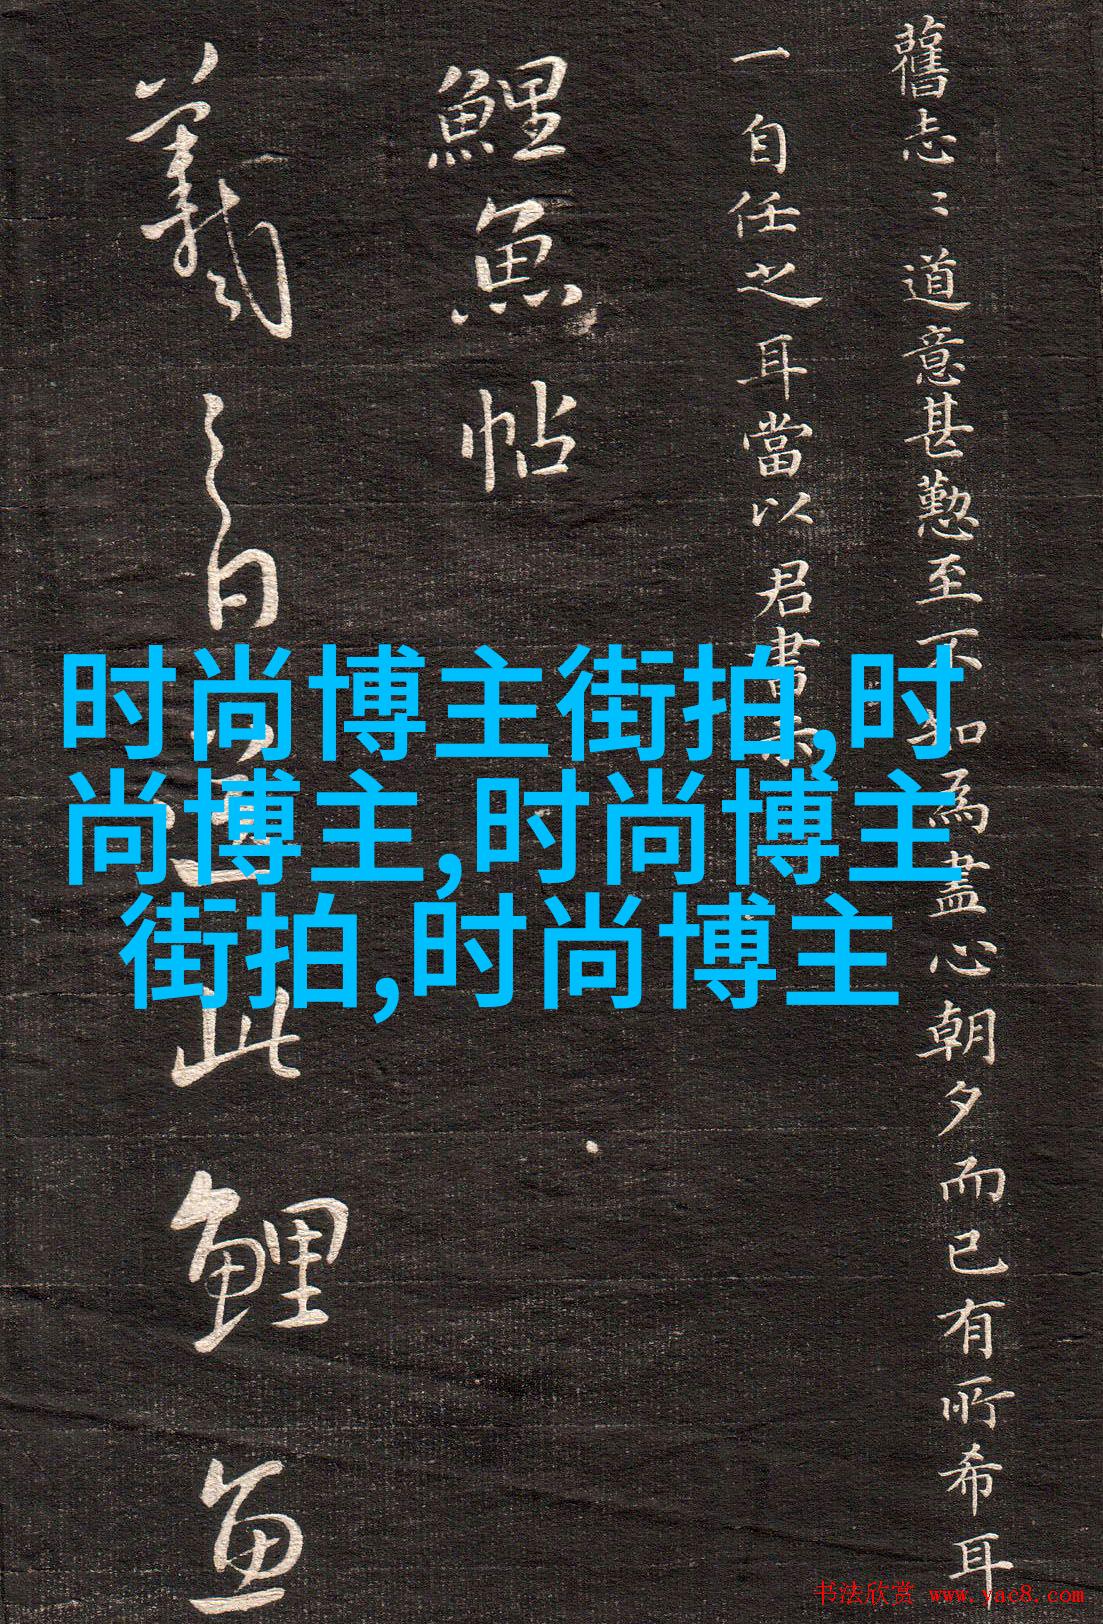 舊志〻道意甚懃至不知為盡心朝夕而已有所希耳
一自任之耳當以君書
鯉魚帖
羲之白
此鯉魚
时尚博主街拍,时
尚博主,时尚博主
街拍,时尚博主
书法欣赏 www.yac8.com